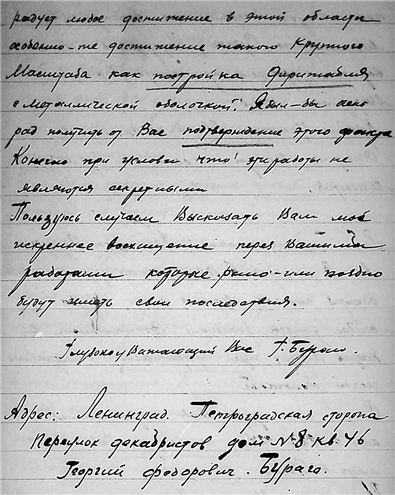 радует любое достижение в этой области
особенно-же достижение такого крупного
масштаба как постройка Дирижабля
с металлической оболочкой! Я был-бы очень
рад получить от Вас подтверждение этого факта
Конечно при условии что эти работы не
являются секретными
Пользуюсь случаем Высказать Вам моё
искреннее восхищение перед Вашими
работами которые рано-или поздно
будут иметь свои последствия.
Глубокоуважающий Вас Г. Бураго.
Адрес: Ленинград. Петроградская сторона
Переулок декабристов дом N8 кв. 46
Георгий Федорович. Бураго.